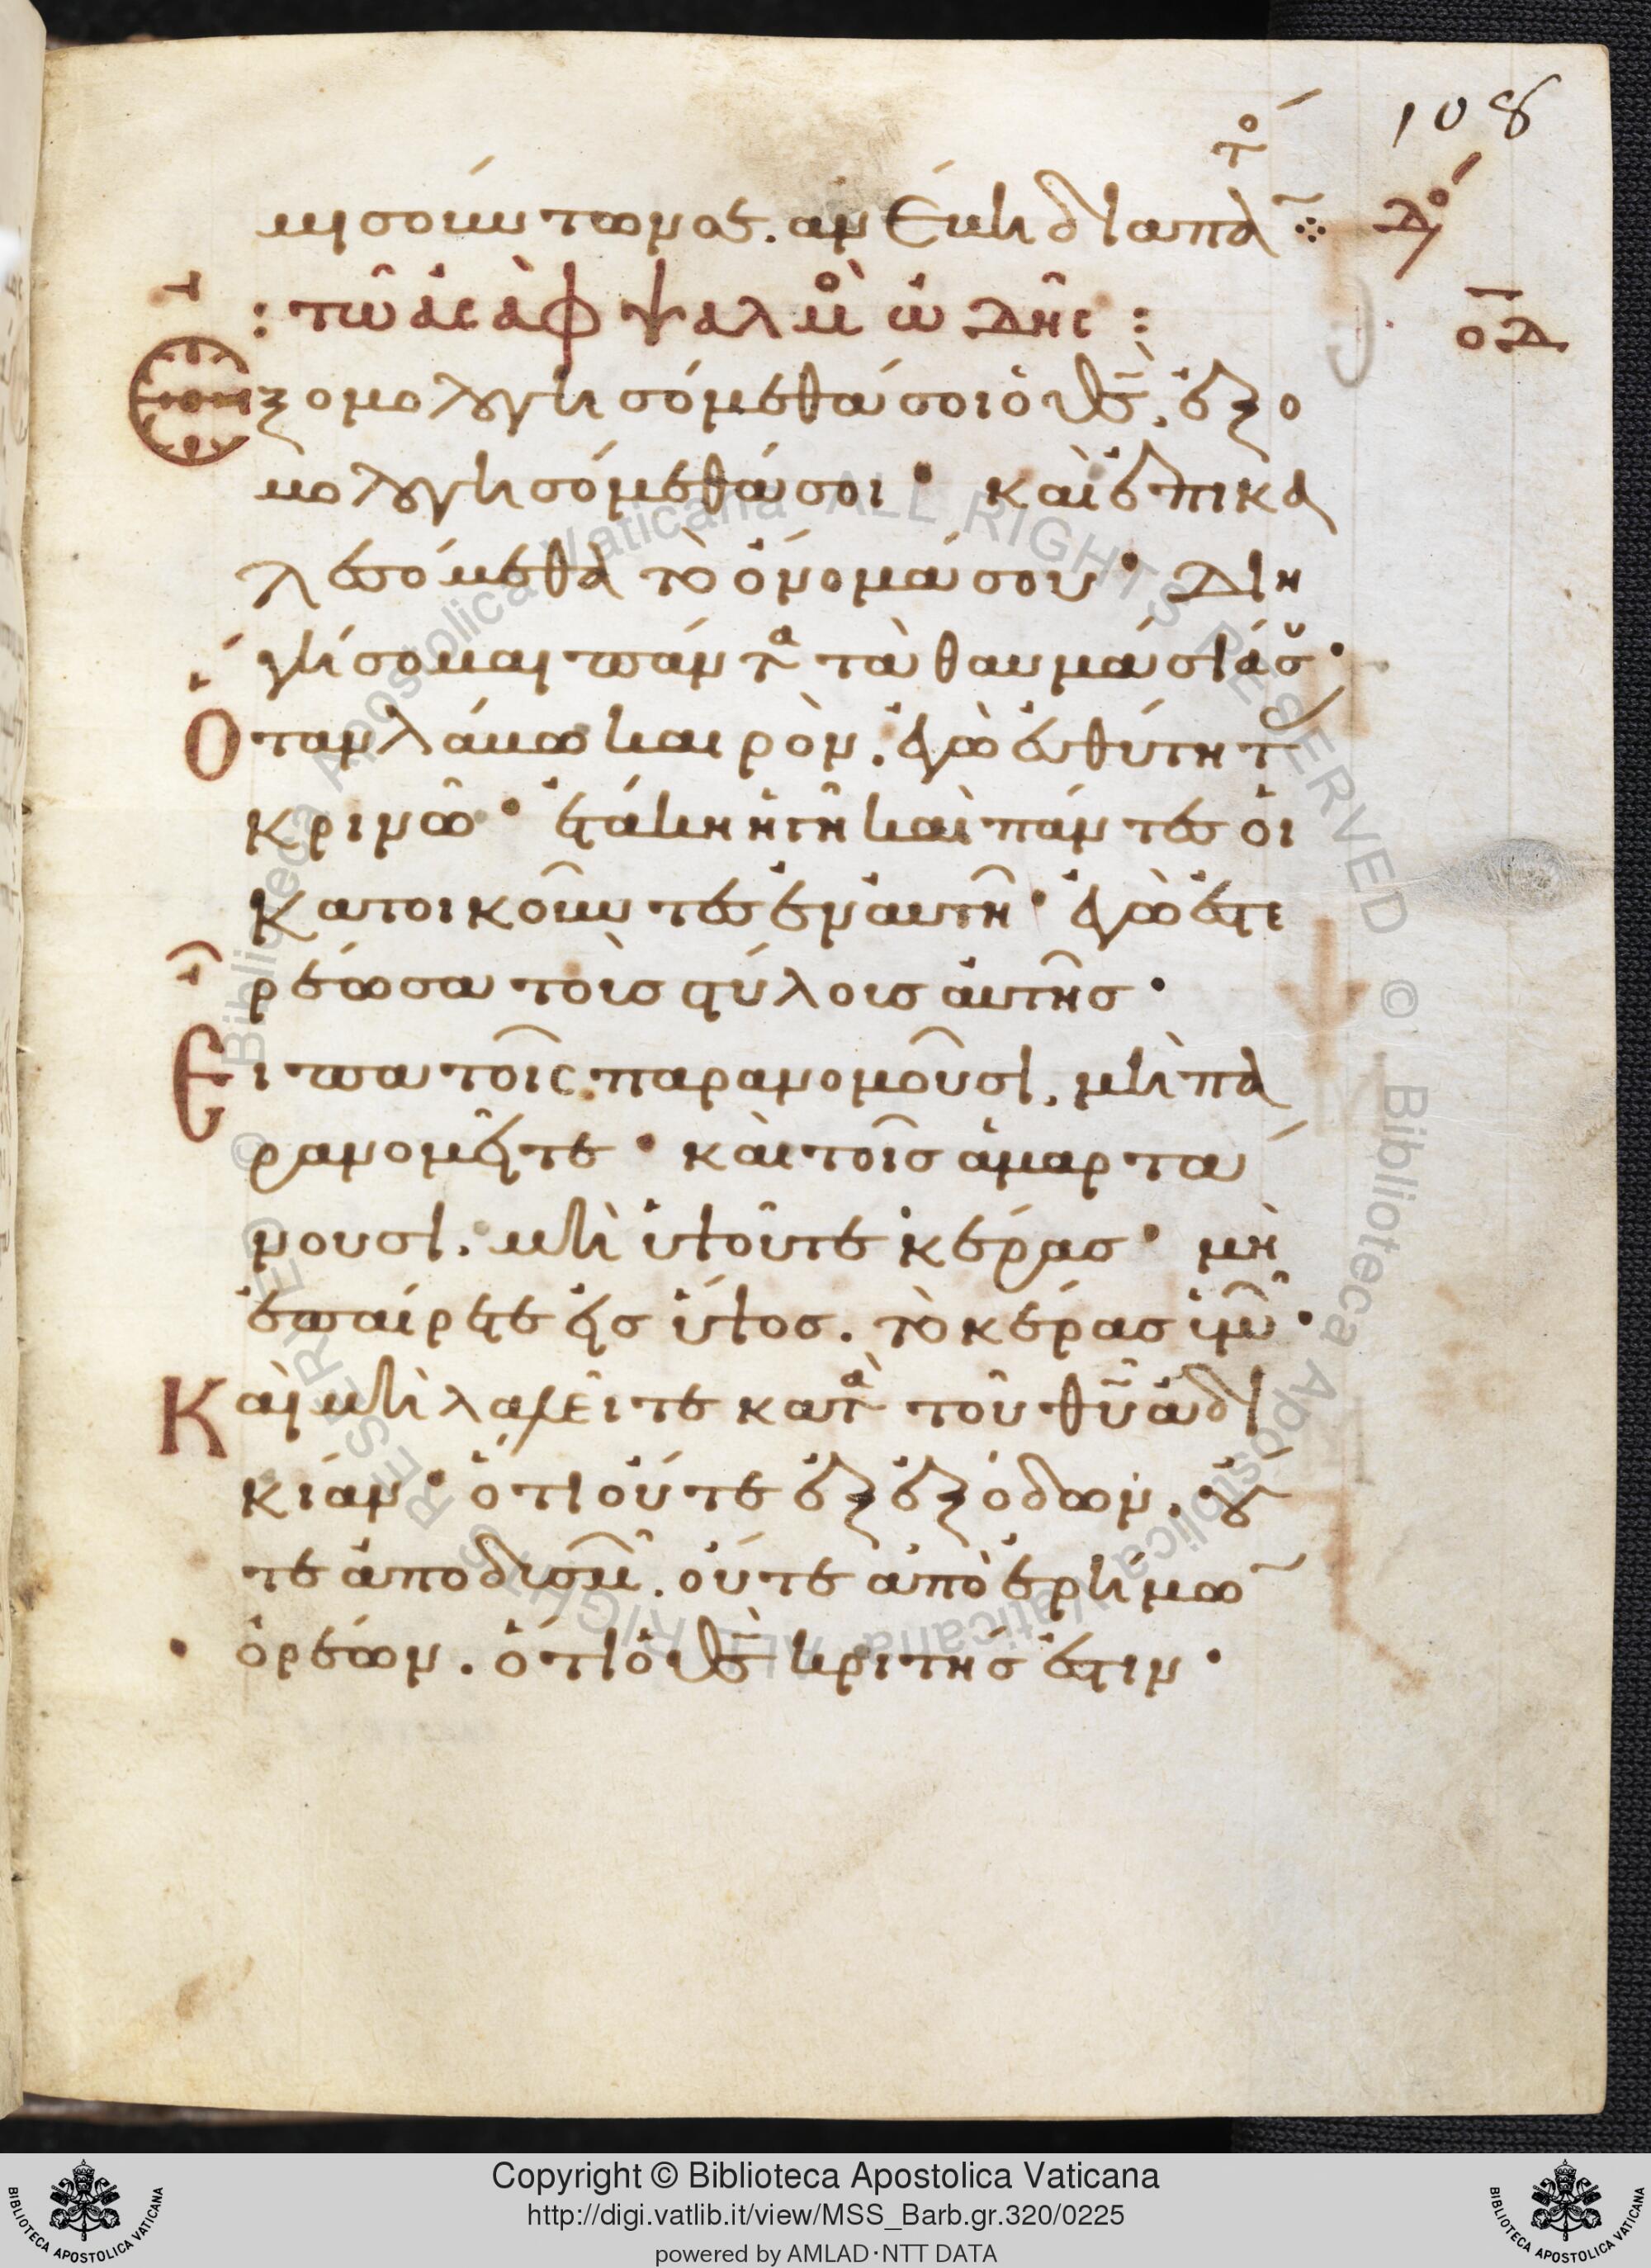 108
μισούντων σε. ἀνέβη διαπαντὸ
δό
τῶ ἀσὰφ ψαλμὸ ὠδῆς
οδ
Ἐξομολογησόμεθά σοι ὁ θς, ἐξο
μολογησόμεθά σοι· καὶ ἐπικα
λεσόμεθα τὸ ὄνομά σου· διη
γήσομαι πάντα τὰ θαυμάσιά σου·
Ὅταν λάβω καιρὸν. ἐγὼ εὐθύτητ
κρινῶ· ἐτάκη ἡ γῆ καὶ πάντες οἱ
κατοικοῦντες ἐν αυτῆ· ἐγὼ ἐστε
ρέωσα τοὺσ στύλουσ αὐτῆσ·
Εἶπα τοῖς παρανομοῦσι, μὴ πα
ρανομεῖτε· καὶ τοῖσ ἁμαρτά
νουσι. μὴ ὑψοῦτε κέρασ· μὴ
ἐπαίρετε εἰσ ὕψοσ. τὸ κέρασ ὑμῶ·
Καὶ μὴ λαλεῖτε κατὰ τοῦ θῦ ἀδι
κίαν· ὅτι οὔτε ἐξ ἐξόδων. οὔ
τε ἀπο δυσμ. οὔτε ἀπὸ ἐρήμω
ὀρέων. ὅτι ὁ θς κριτήσ ἐστιν·
Copyright © Biblioteca Apostolica Vaticana
http://digi.vatlib.it/view/MSS_Barb.gr.320/0225
powered by AMLAD·NTT DATA
BIBLIOTECA APOSTOLICA VATICANA
BIBLIOTECA APOSTOLICA VATICANA
© Biblioteca Apostolica Vaticana ALL RIGHTS RESERVED © Biblioteca Apostolica Vaticana ALL RIGHTS RESERVED